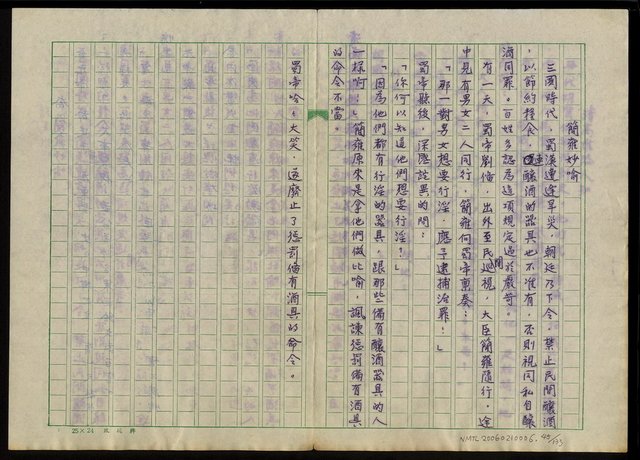 簡雍妙喻
三國時代,蜀漢連逢旱災,朝廷乃下令,禁止民間釀酒
,以節約糧食,連釀酒的器具也不准有,否則視同私自釀
酒同罪。百姓多認為這項規定過於嚴苛。
有一天,蜀帝劉備,出外至民間巡視,大臣簡雍隨行,途
中見有男女二人同行,簡雍向蜀帝稟奏:
「那一對男女想要行淫,應予逮捕治罪!」
蜀帝聽後,深感詫異的問:
「你何以知道他們想要行淫?」
「因為他們都有行淫的器具,跟那些備有釀酒器具的人
一樣啊!」簡雍原來是拿他們做比喻,諷諫懲罰備有酒具
的命令不當。
蜀帝哈哈大笑,遂廢止了懲罰備有酒具的命令。
25×24
NMTL20060210006